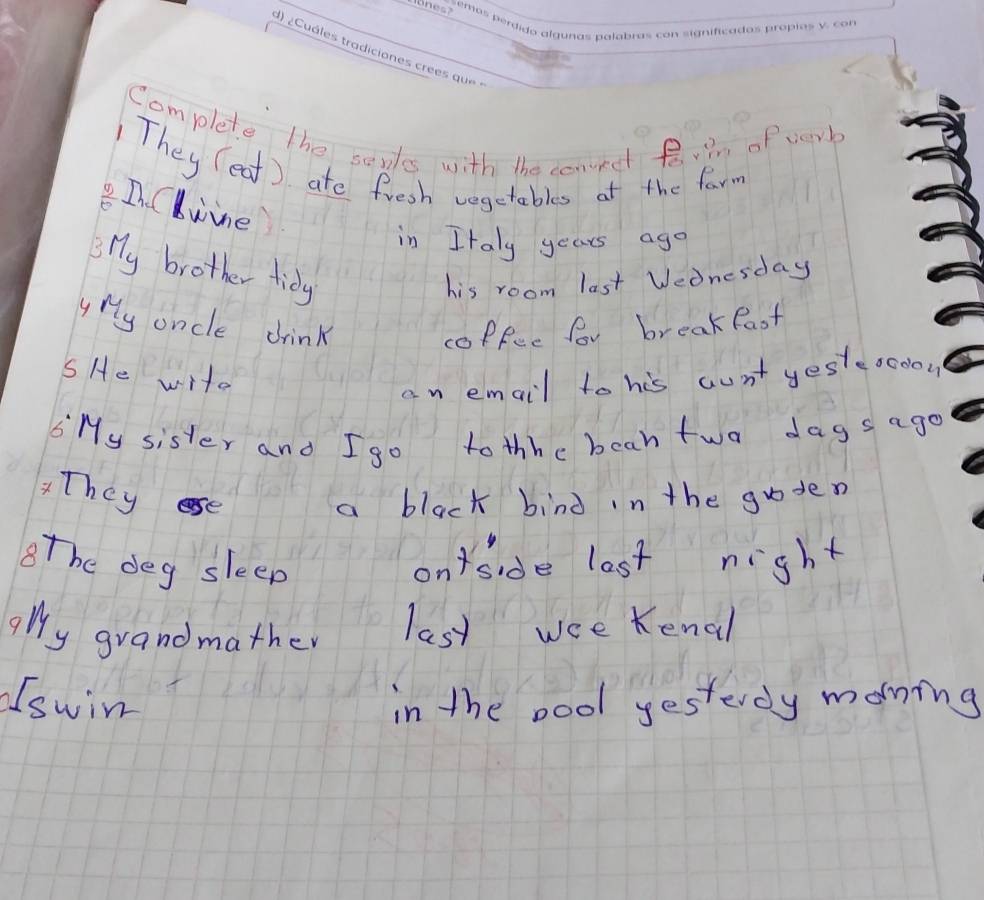 ones?
emos perdido algunas palabras con significados propios y. con
d) ¿Cuáles tradiciones crees que
Complete the sents with the convect form of verb
1 They (eat). ate fresh vegetables at the farm
in Italy years ago
3 My brother tidy his room last Wednesday
4 My oncle drink coffee for breakfast
5 He write an email to his aunt yesterday
6 My sister and I go to thhe beah two days ago
7 They a black bind in the goden
8 The deg sleep ontside last night
9 My grandmather last weekend
I swin in the pool yesterdy morning